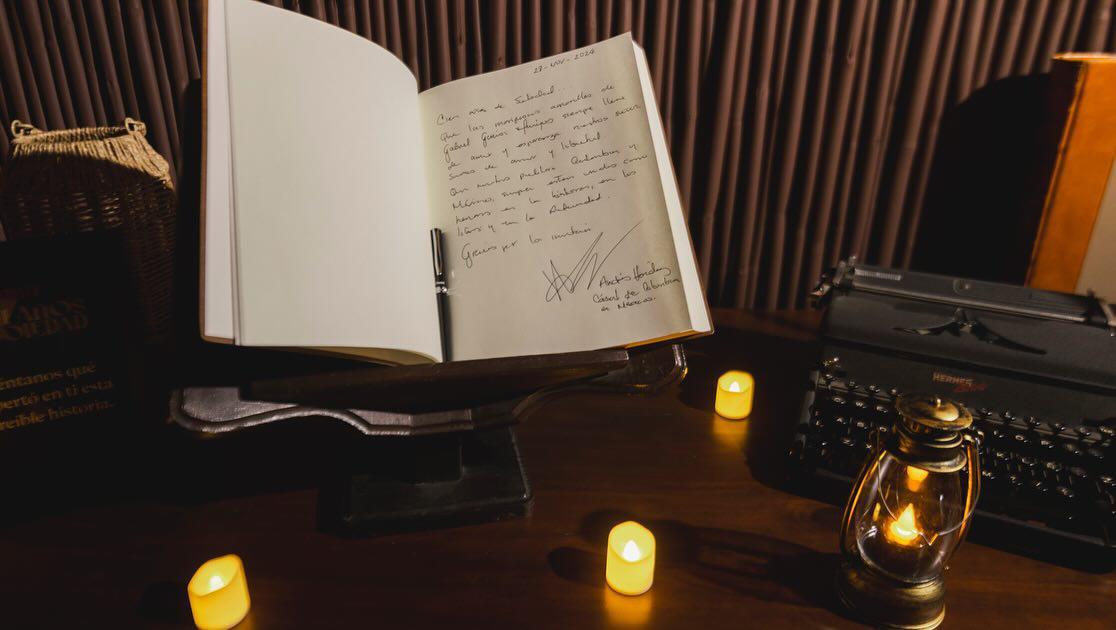 28-NOV-2024
Cien años de Soledad...
Que las mariposas amarillas de
Gabriel García Márquez siempre llene
de amor y esperanza nuestros
de amor y libertad
Que nuestros pueblos Colombia y
México, siempre esten unidos como
hermanos en la historia, en los
libros y en la
Gracias por la invitación
Andrés
Consul de Colombia
en México.
AÑOS
SOLEDAD
éntanos qué
pertó en ti esta
reíble historia.
HERMES